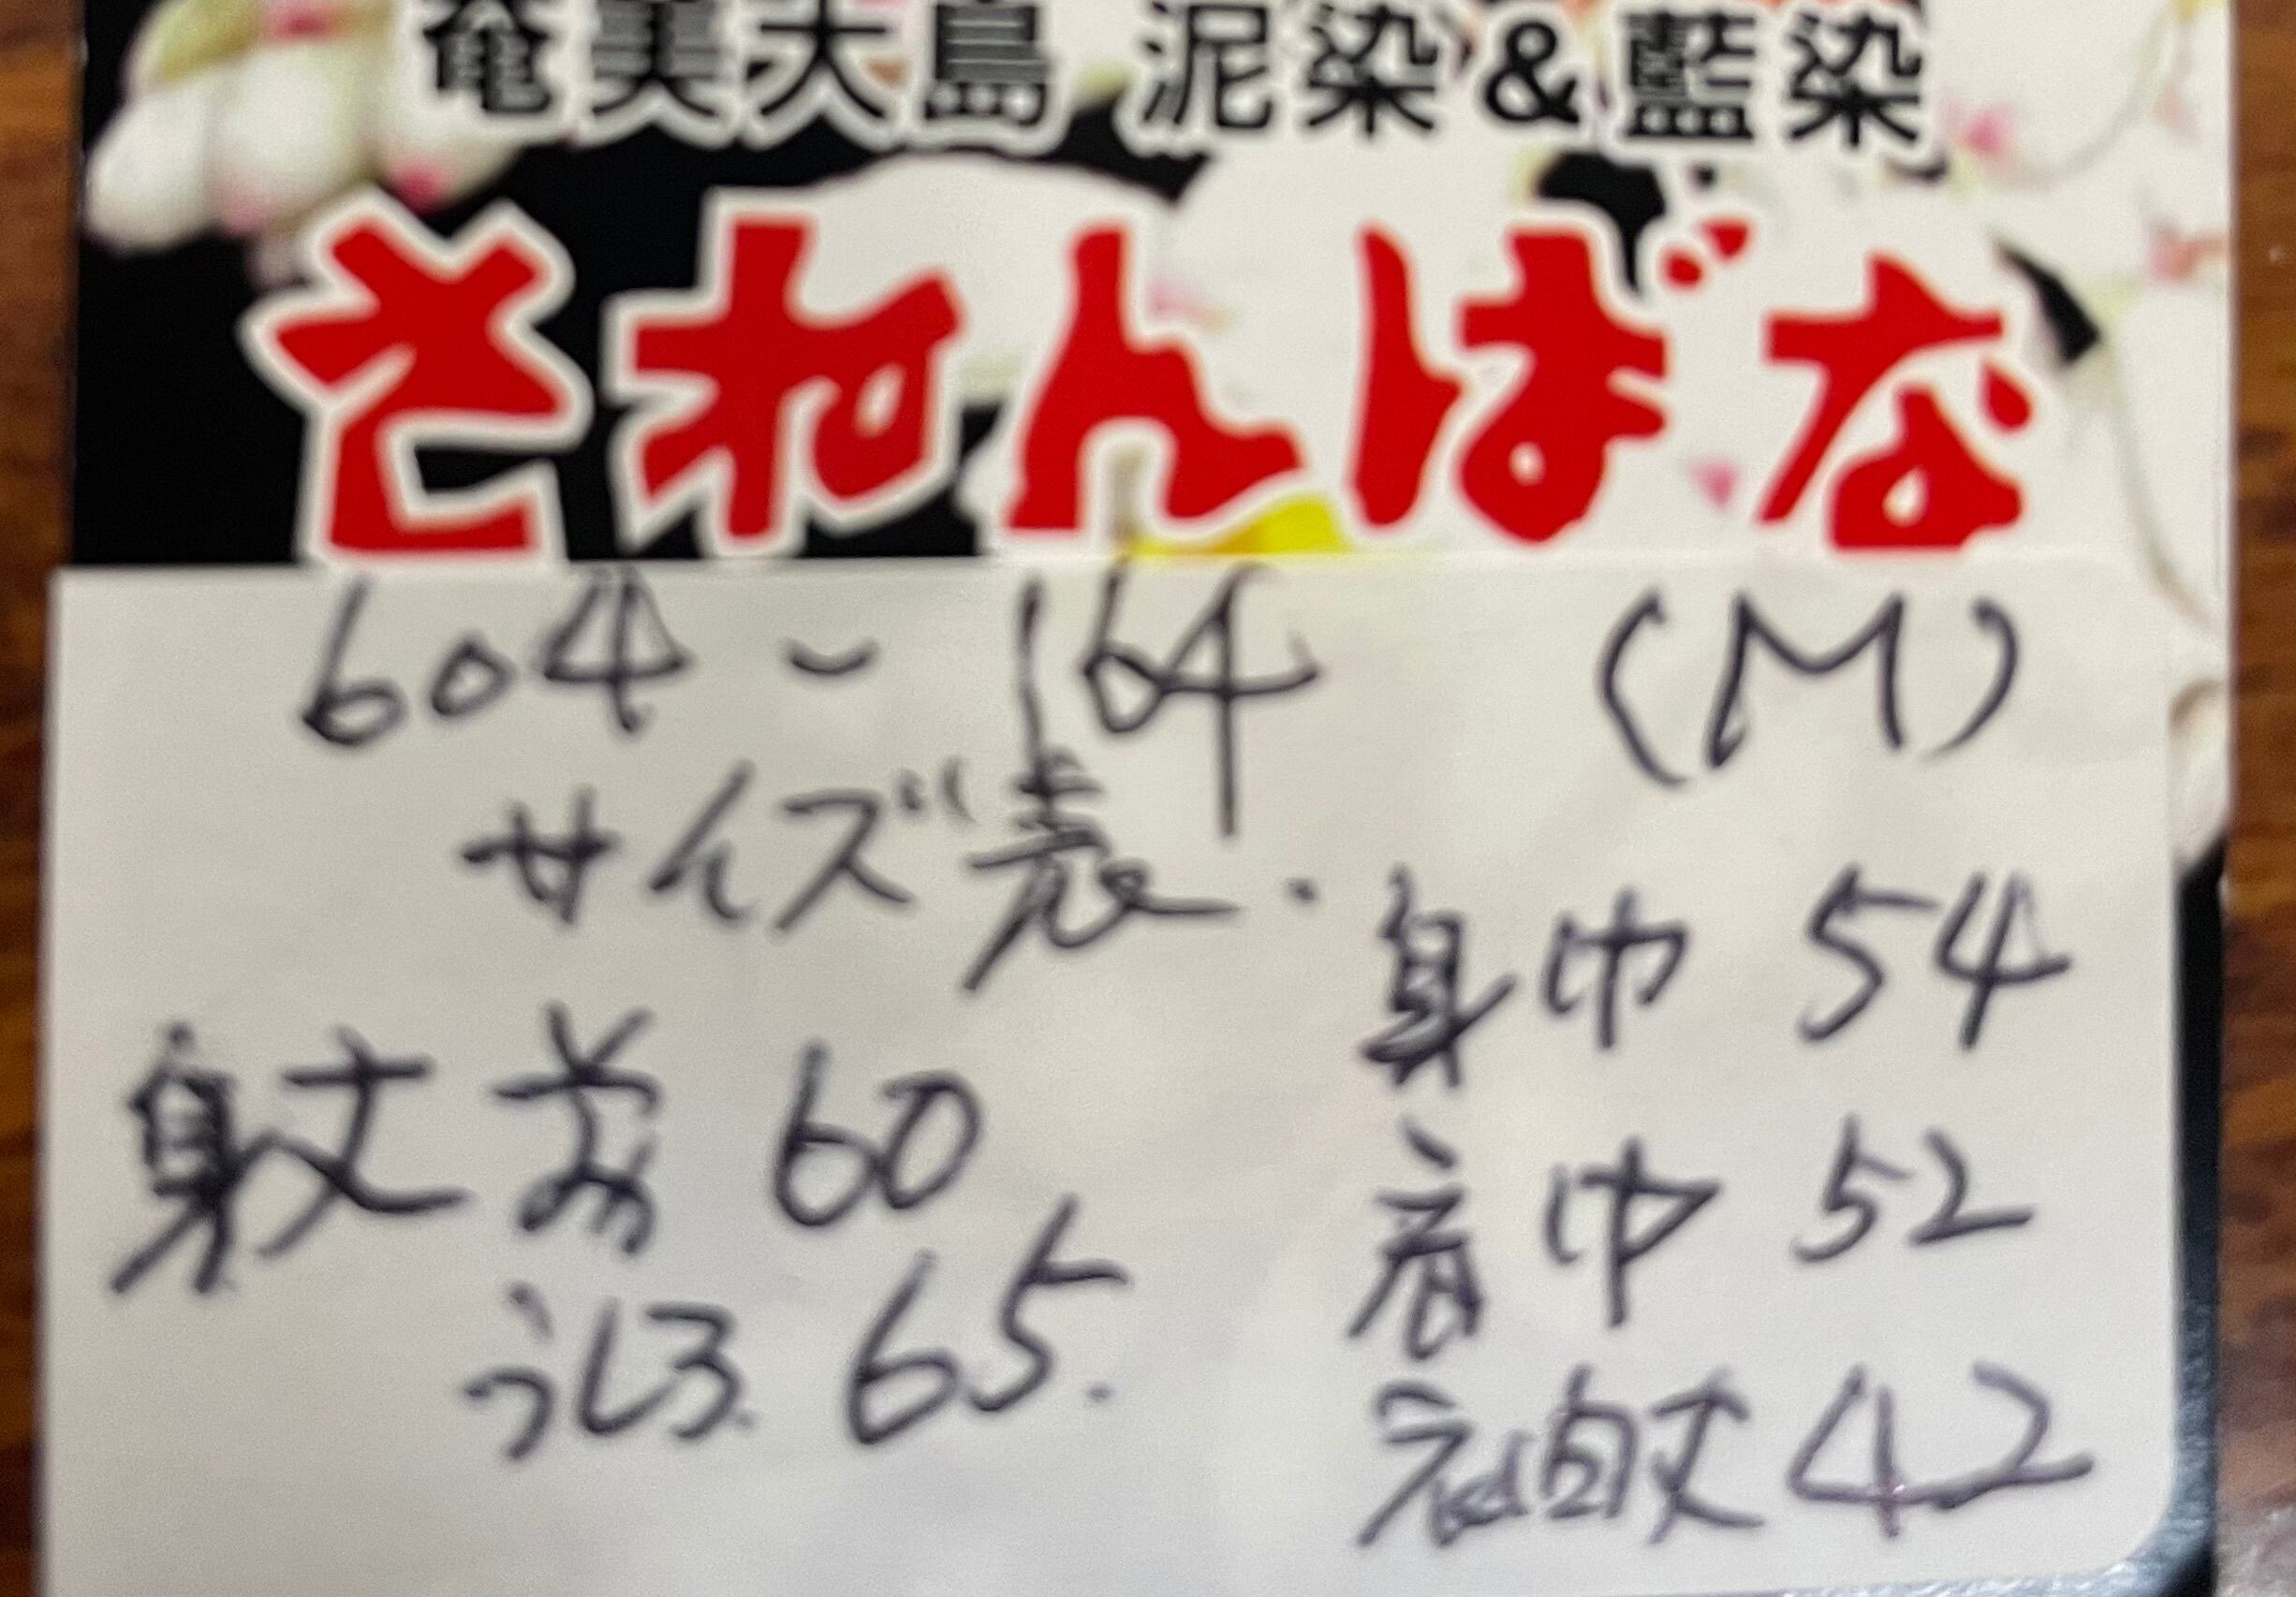 奄美大島 泥染&藍染
さねんばな
604~164 (M)
サイズ表.
身丈 前 60
うしろ. 65.
身巾 54
肩巾 52
袖丈 42